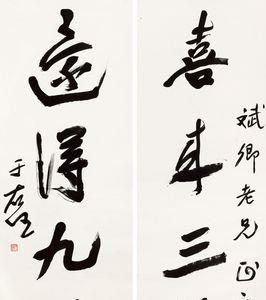 斌卿老兄正
喜來三
得九
于右任